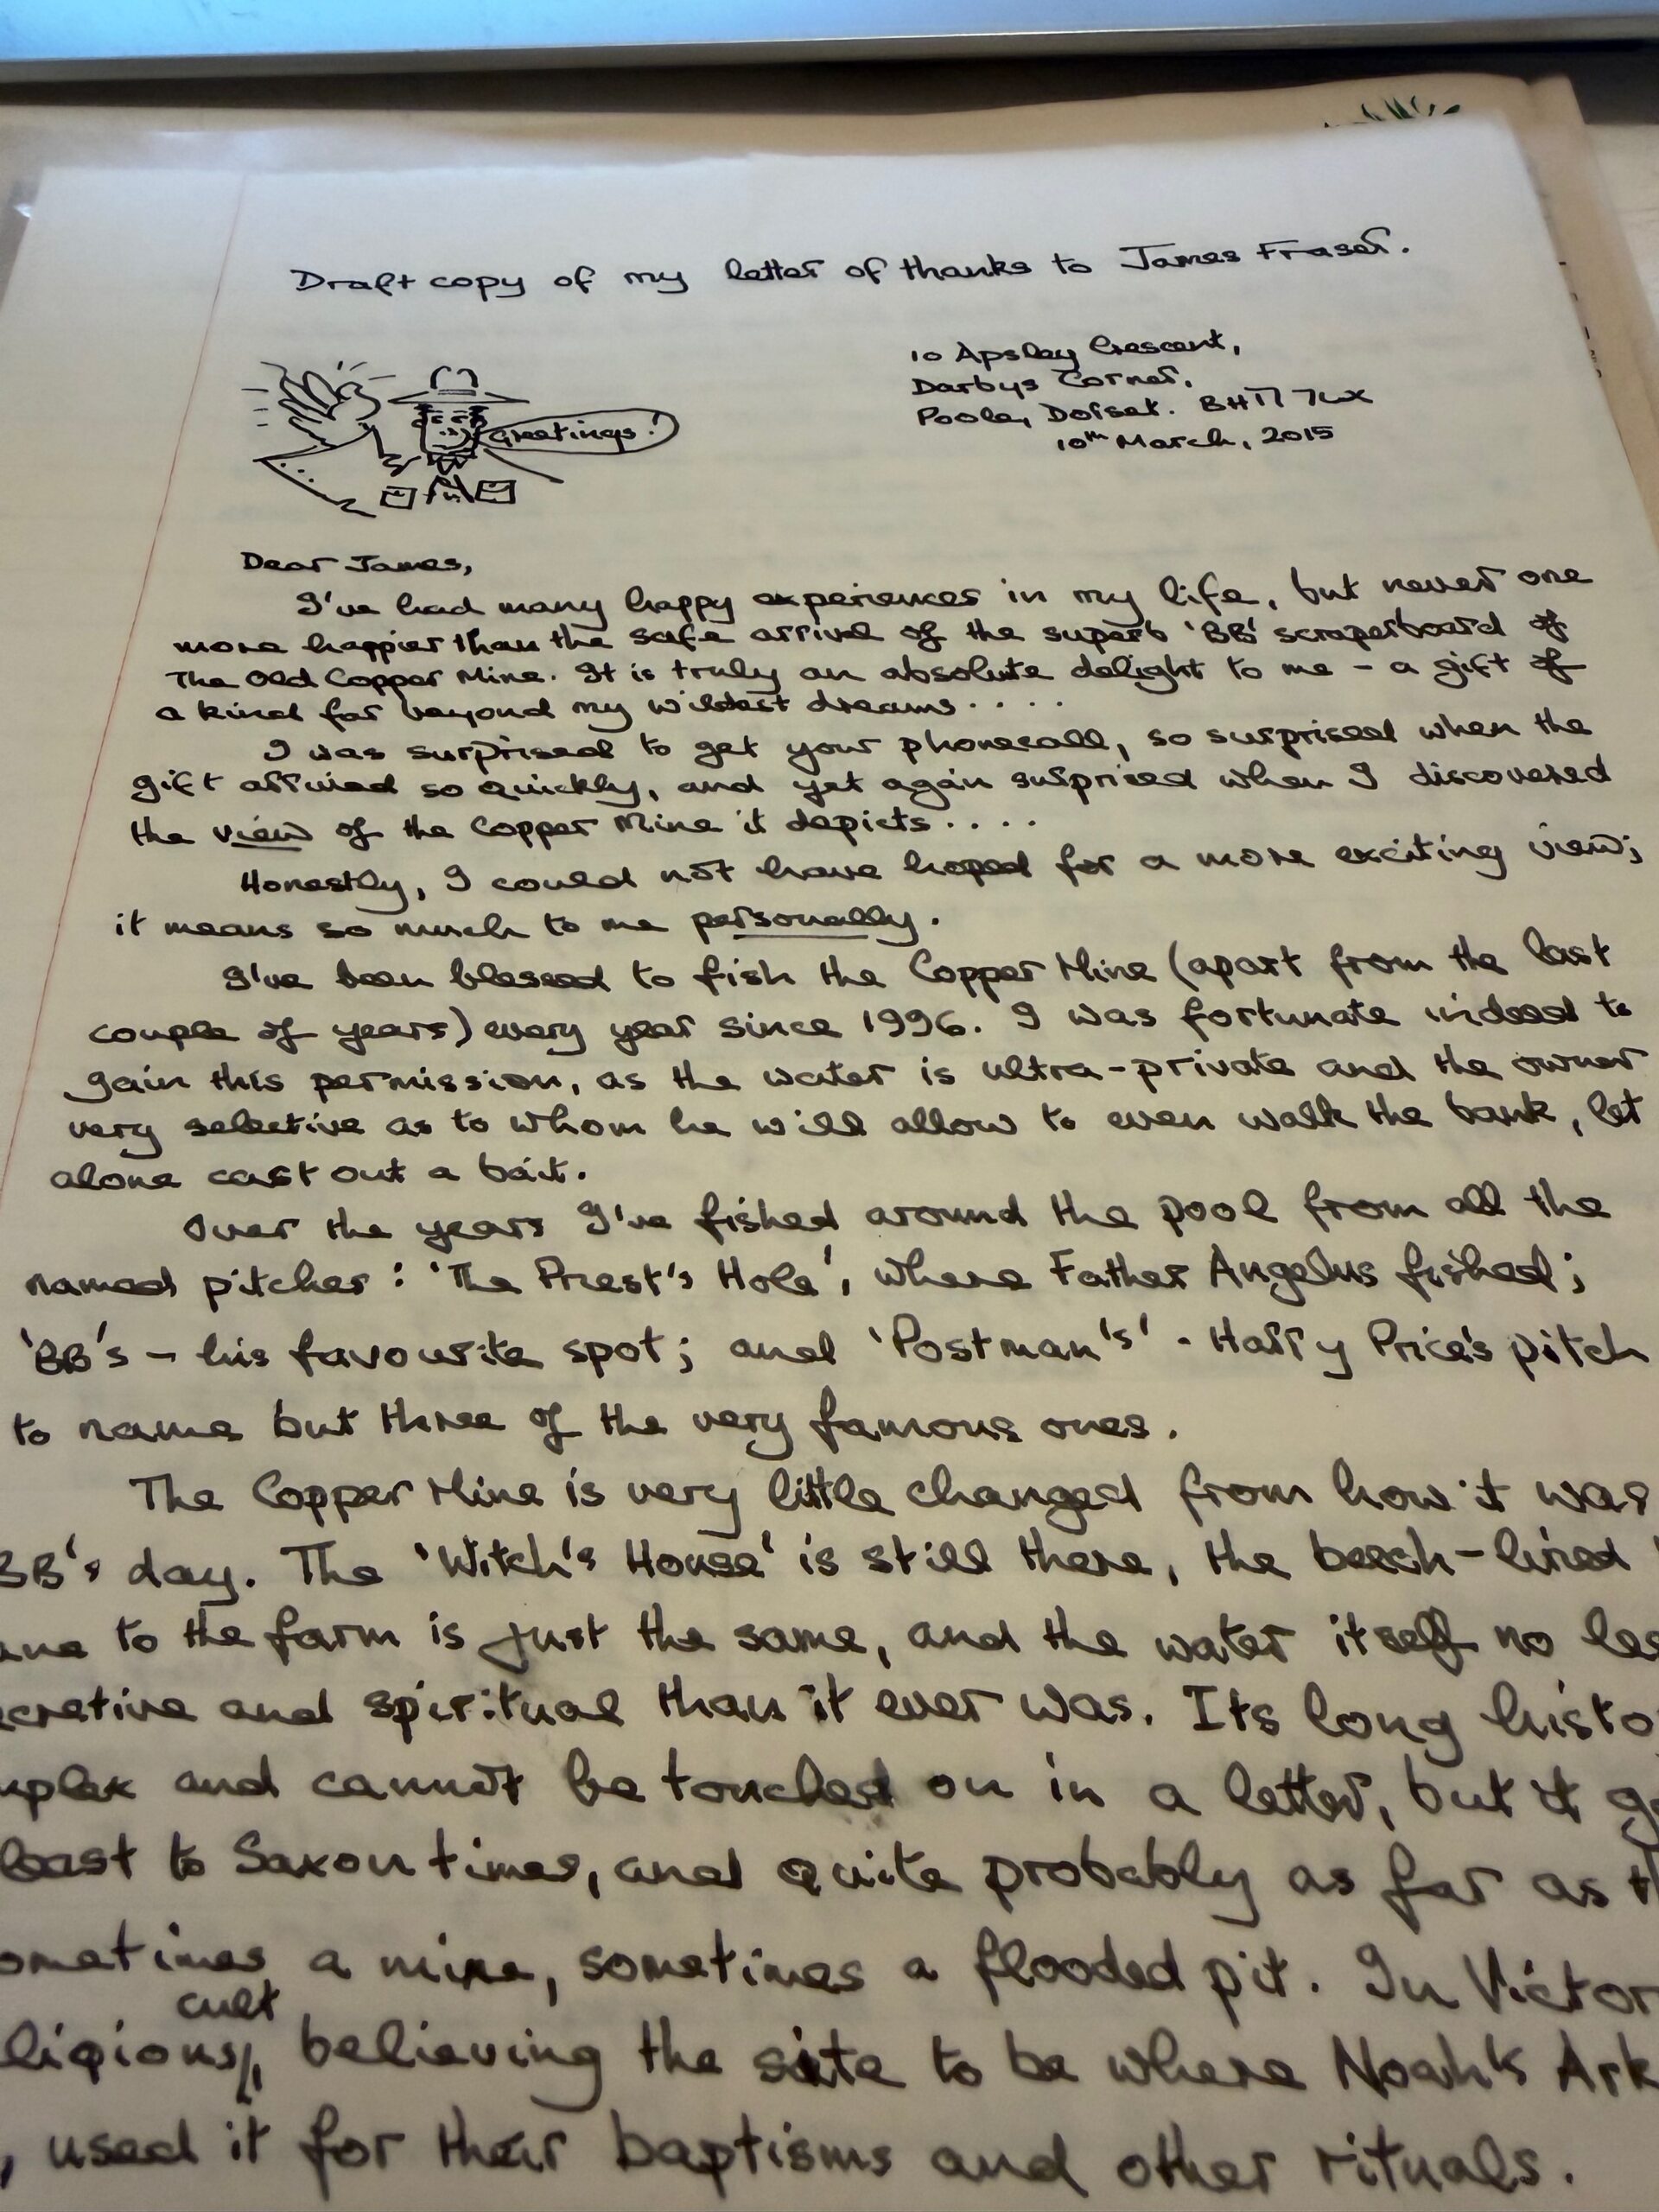 Draft copy of my letter of thanks to James Fraser.
10 Apsley Crescent,
Darbys Corner,
Poole, Dorset. BH17 7LX
10th March, 2015
Greetings!
Dear James,
I've had many happy experiences in my life, but never one
more happier than the safe arrival of the superb 'BB' scraperboard of
The Old Copper Mine. It is truly an absolute delight to me - a gift of
a kind far beyond my wildest dreams....
I was surprised to get your phonecall, so surprised when the
gift arrived so quickly, and yet again surprised when I discovered
the view of the Copper Mine it depicts....
Honestly, I could not have hoped for a more exciting view;
it means so much to me personally.
I've been blessed to fish the Copper Mine (apart from the last
couple of years) every year since 1996. I was fortunate indeed to
gain this permission, as the water is ultra-private and the owner
very selective as to whom he will allow to even walk the bank, let
alone cast out a bait.
Over the years I've fished around the pool from all the
named pitches: 'The Priest's Hole', where Father Angelus fished;
'BB's - his favourite spot; and 'Postman's' - Harry Price's pitch
to name but three of the very famous ones.
The Copper Mine is very little changed from how it was
BB's day. The 'Witch's House' is still there, the beech-lined
to the farm is just the same, and the water itself no les
cretive and spiritual than it ever was. Its long histo
mplex and cannot be touched on in a letter, but it go
least to Saxon times, and quite probably as far as th
ometimes a mine, sometimes a flooded pit. In Victor
ligious cult, believing the site to be where Noah's Ark
, used it for their baptisms and other rituals.